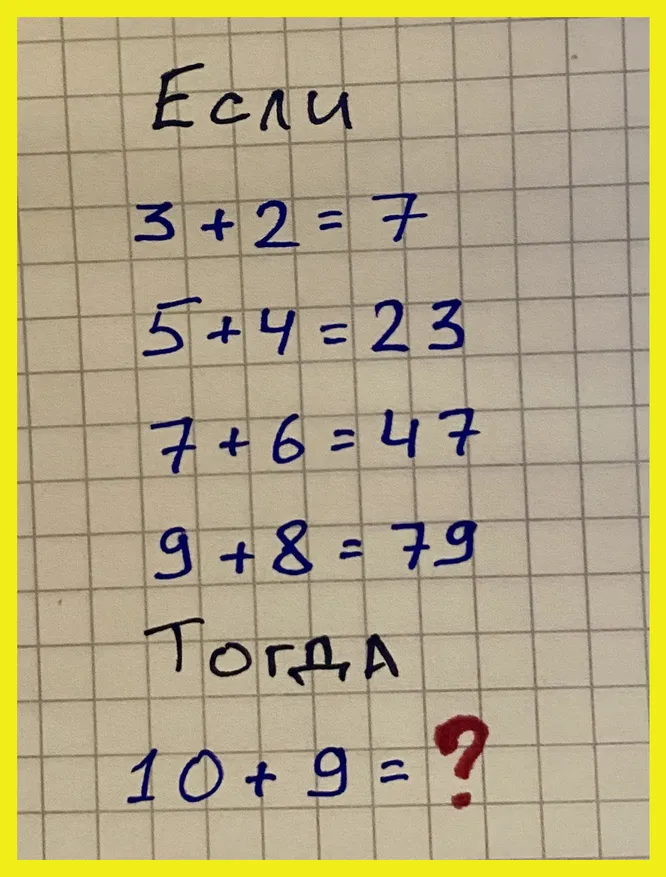 Если
3 + 2 = 7
5 + 4 = 23
7 + 6 = 47
9 + 8 = 79
Тогда
10 + 9 = ?